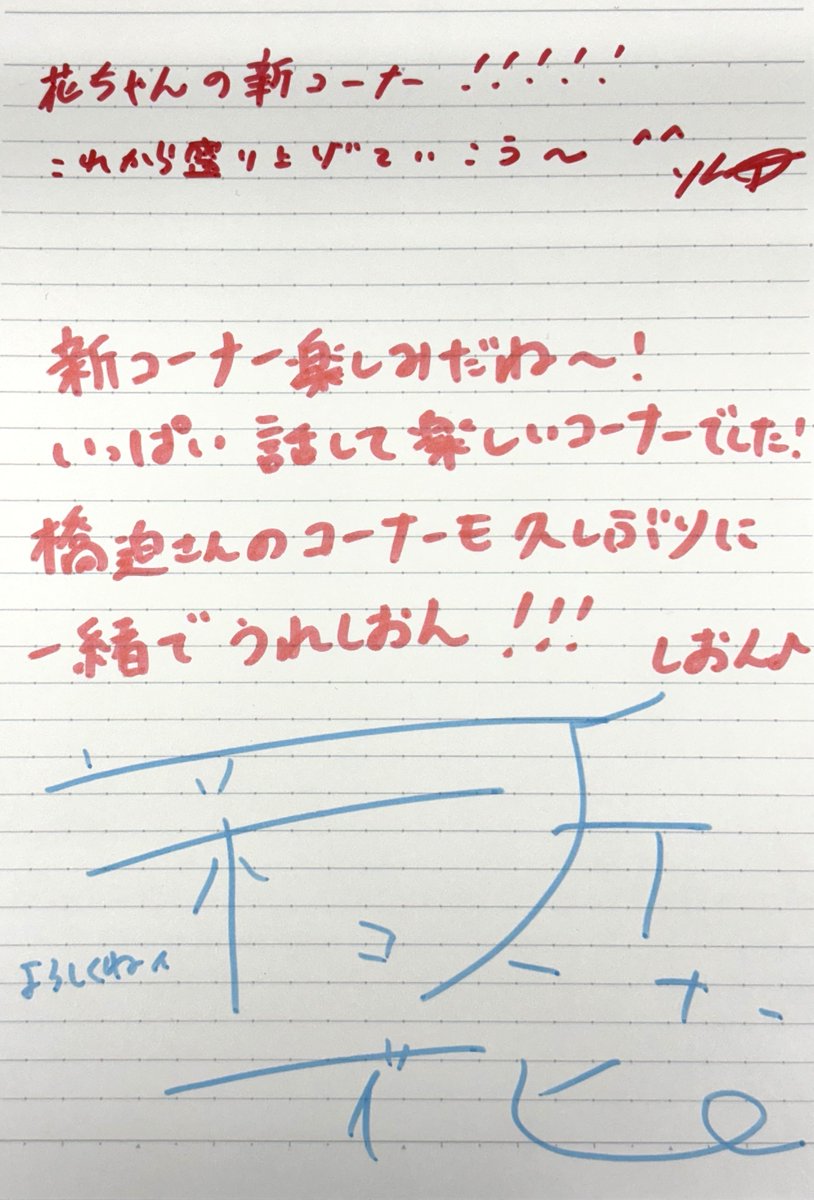 花ちゃんの新コーナー !!!!!
これから盛り上げていこう〜 ^^
新コーナー楽しみだね〜!
いっぱい話して楽しいコーナーでした!
橋迫さんのコーナーも久しぶりに
一緒でうれしおん !!!
しおん♪
新コーナー
よろしくね^
花